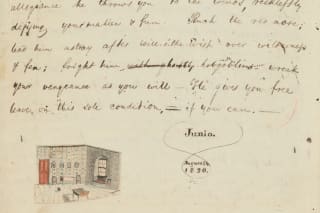 allegiance he throws you to the winds, recklessly
defying you, matter & form. Pluck the red nose;
lead him astray after will-o'the wisps over wilderness
& fen; fright him with ghastly hobgoblins – wreak
your vengeance as you will – He gives you free
leave, on this sole condition, – if you can. –
Junio.
August
1830.